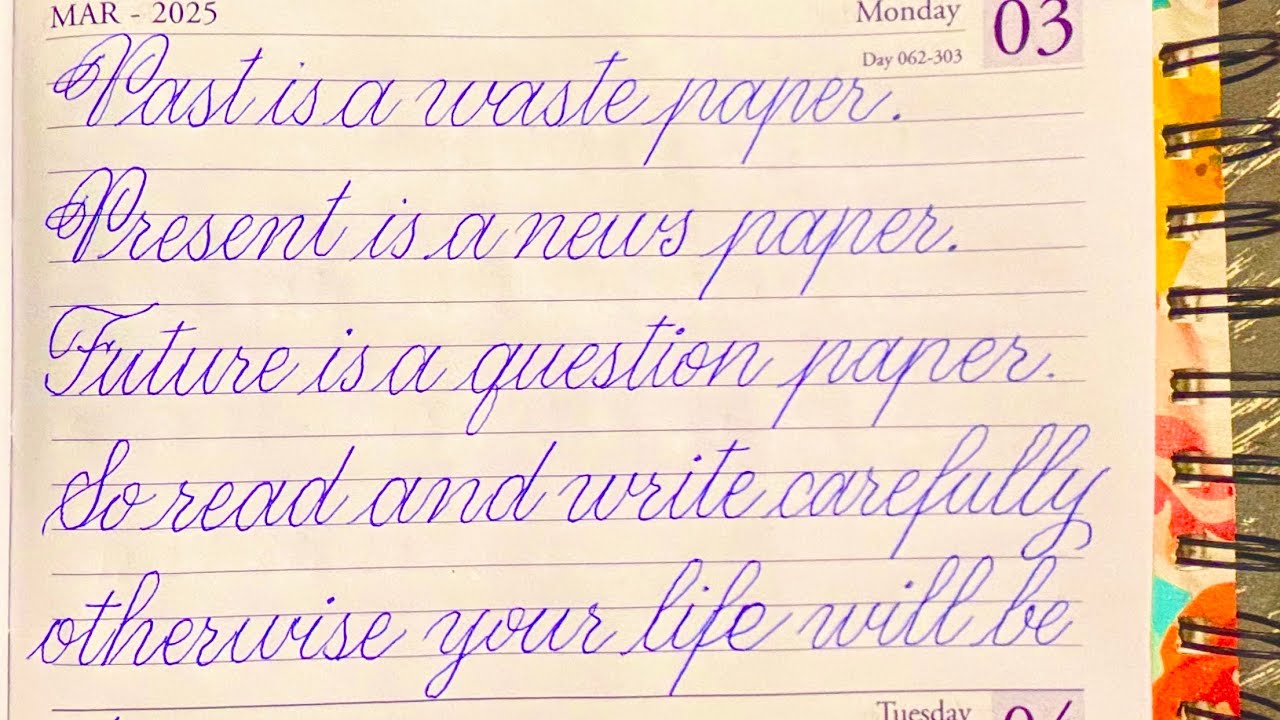 MAR - 2025 Monday 03
Day 062-303
Past is a waste paper.
Present is a news paper.
Future is a question paper.
So read and write carefully
otherwise your life will be
Tuesday 04